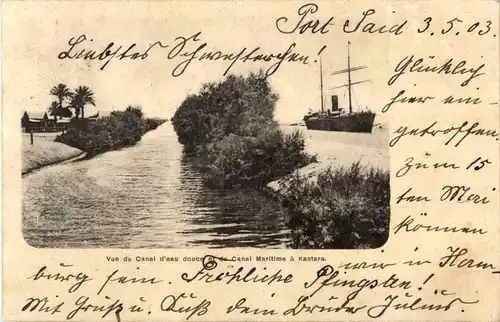 Port Said 3.5.03.
Liebstes Schwesterchen!
Glücklich
hier ein-
getroffen.
Zum 15
ten Mai
können
wir in Ham
burg sein. Fröhliche Pfingsten!
Mit Gruß u. Kuß dein Bruder Julius.
Vue du Canal d'eau douce et du Canal Maritime à Kantara.